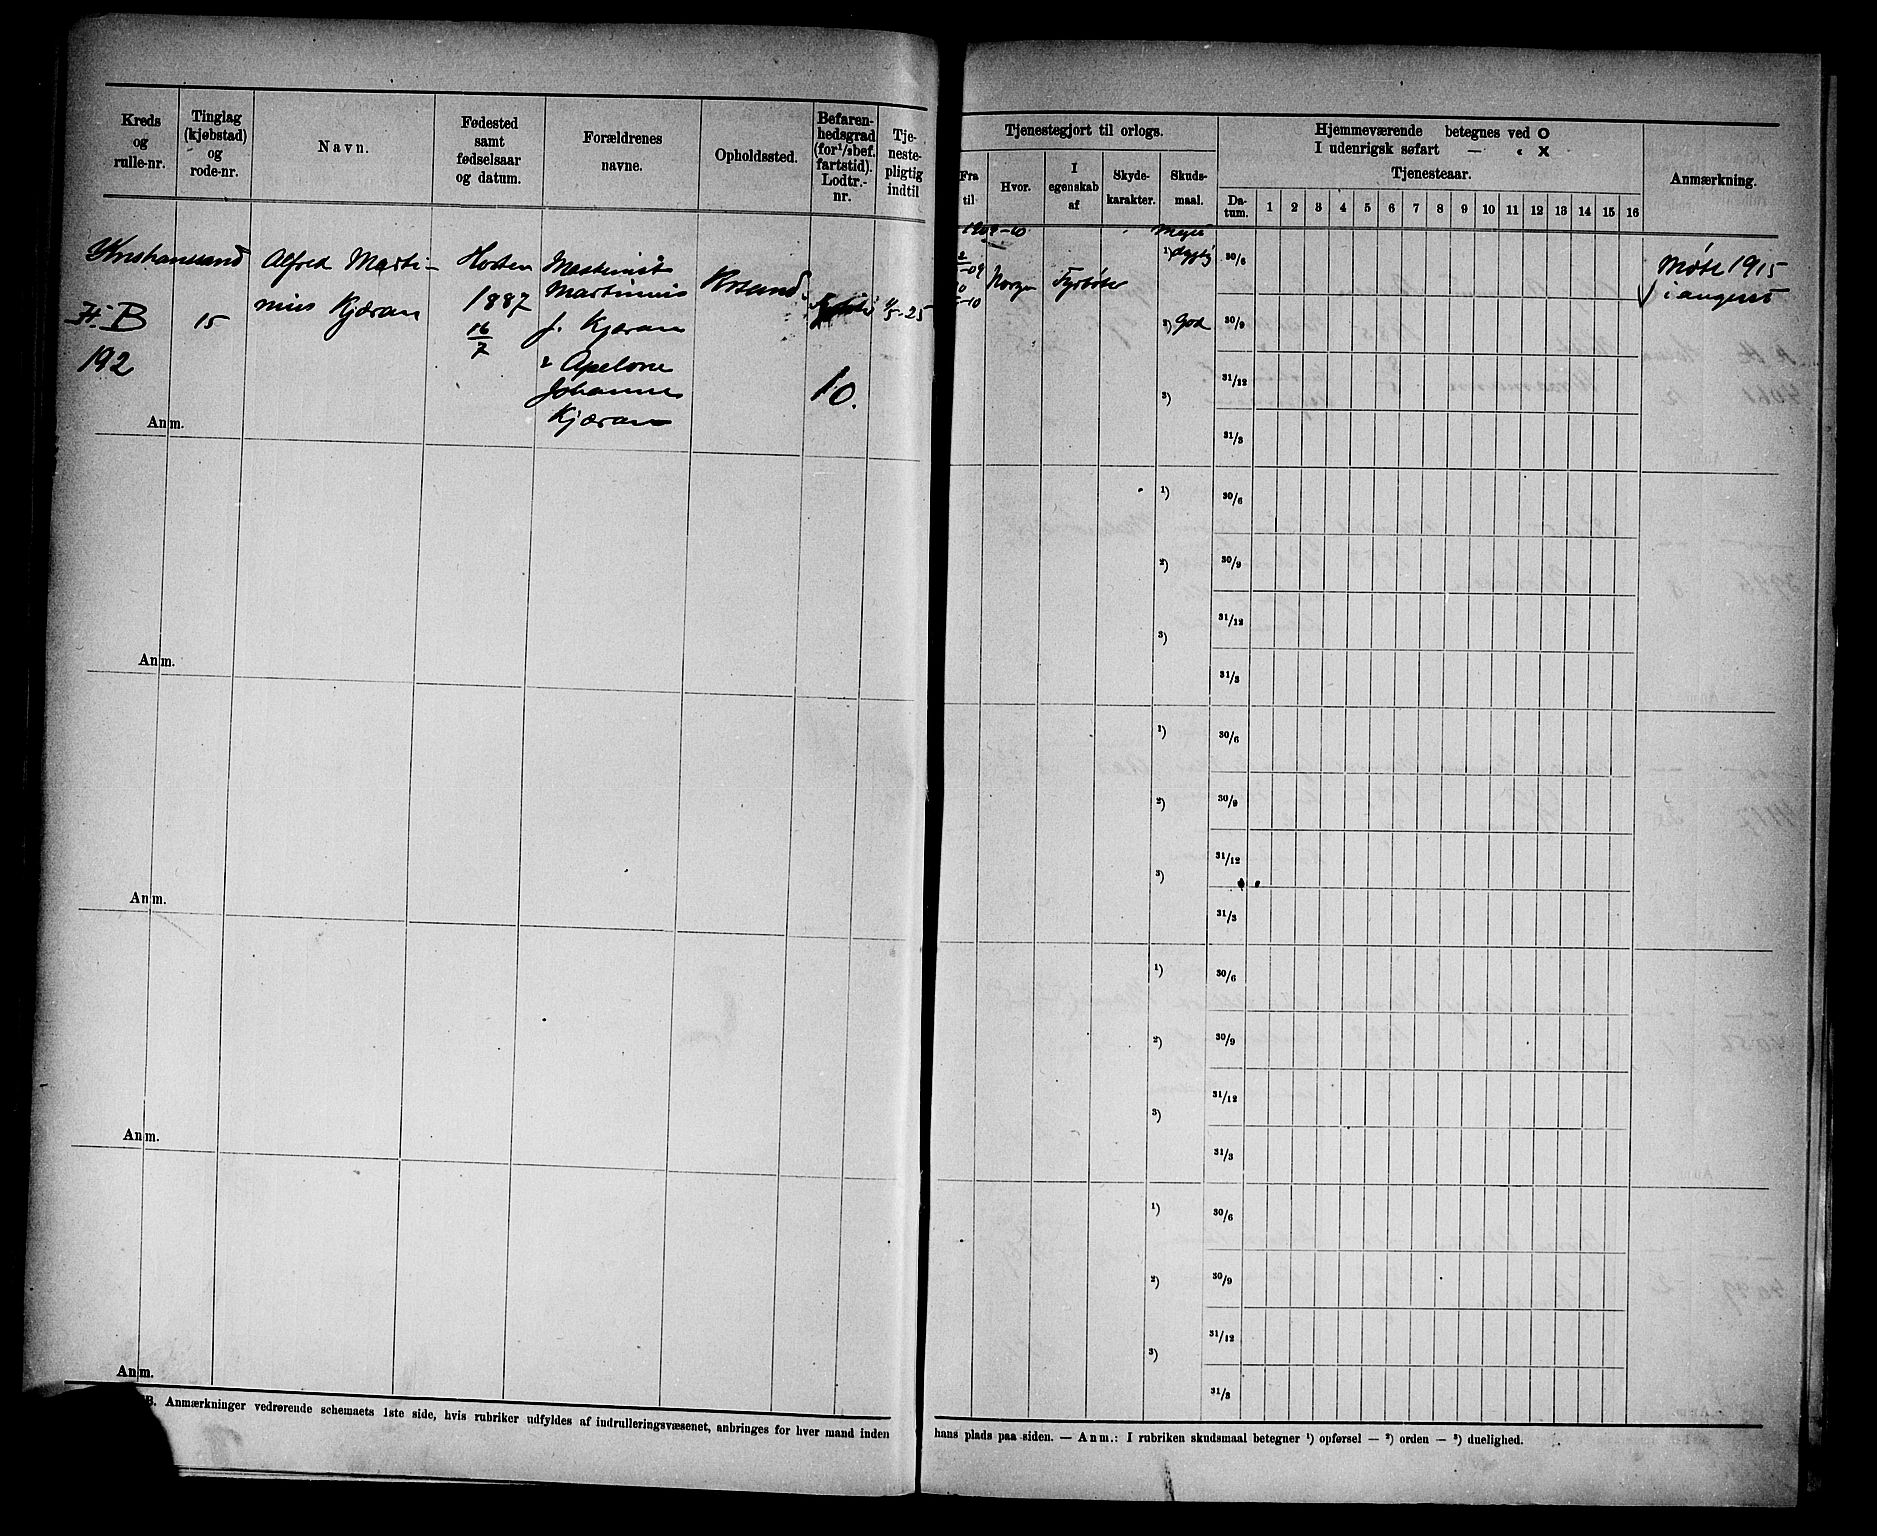 Kreds
og
rulle-nr.
Tinglag
(kjøbstad)
og
rode-nr.
Navn.
Fødested
samt
fødselsaar
og datum.
Forældrenes
navne.
Opholdssted.
Befaren-
hedsgrad
(for 1/2 bef.
fartstid).
Lodtr.-
nr.
Tje-
neste-
pligtig
indtil
Tjenestegjort til orlogs.
Fra
til
Hvor.
I
egenskab
af
Skyde-
karakter.
Skuds-
maal.
Hjemmeværende betegnes ved O
I udenrigsk søfart — „ X
Tjenesteaar.
Da-
tum.
1 2 3 4 5 6 7 8 9 10 11 12 13 14 15 16
Anmærkning.
Kristianssand
B
192
15
Alfred Marti-
nius Kjæran
Horten
1887
16/7
Maskinist
Martinius
J. Kjæran
Johanne
Kjæran
Krsand
10.
1/5-25
1909-10
-09
-10
Norge
Fyrbøter
Meget
1) dygtig
2) God
3)
30/6
30/9
31/12
31/3
Møte 1915
i august
Anm.
1)
2)
3)
30/6
30/9
31/12
31/3
Anm.
1)
2)
3)
30/6
30/9
31/12
31/3
Anm.
1)
2)
3)
30/6
30/9
31/12
31/3
Anm.
1)
2)
3)
30/6
30/9
31/12
31/3
Anm.
B. Anmærkninger vedrørende schemaets 1ste side, hvis rubriker udfyldes af indrulleringsvæsenet, anbringes for hver mand inden
hans plads paa siden. — Anm.: I rubriken skudsmaal betegner 1) opførsel — 2) orden — 3) duelighed.